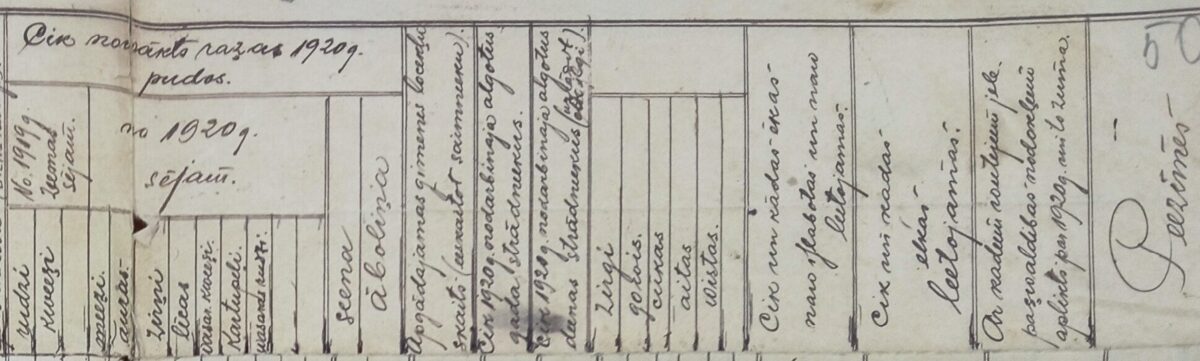 Cik novākts ražas 1920g.
pudos.
No. 1919g
ziemas
sējam.
no 1920g.
sējam.
rudzi
kweeši
meeži
auzas.
zirņi
lēcas
vasar. kweeši.
Kartupeļi.
vasaras rudzi.
seena
āboliņa
Apgādājamas gimenes locekļu
skaits (eeskaitot saimneeku).
Cik 1920g. nodarbinaja algotus
gada strādneekus.
Cik 1920g. nodarbinaja algotus
deenas strādneekus
zirgi
gowis.
cūkas
aitas
wistas.
Cik un kādas ēkas
nav glabotas un nav
leetojamas.
Cik un kādas
ēkas
leetojamas.
Ar kadeem noteikumeem jele-
pašvaldibas nodokļeem
aplikts par 1920g. un to summa.
Peezīmes
50